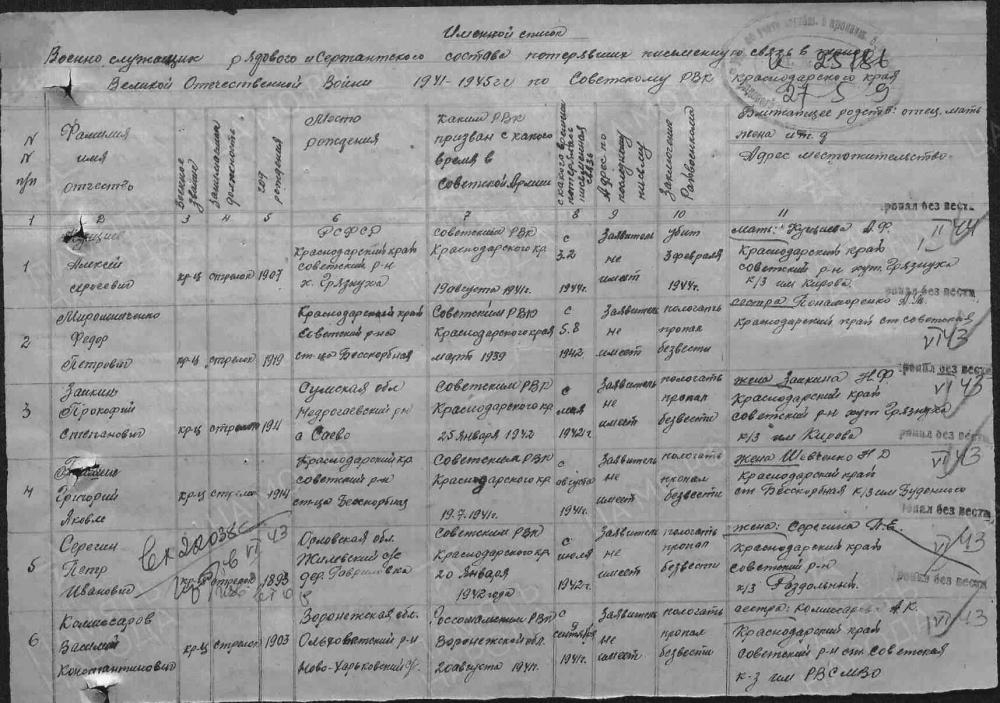 Именной список
Военно служащих рядового и Сержантского состава потерявших письменную связь в
Великой Отечественной Войны 1941-1945 гг по Советскому РВК Краснодарского края
27 5 9
N N п/п
Фамилия имя отчество
Военное звание
занимаемая должность
год рождения
Место рождения
Каким РВК призван с какого время в Советской Армии
с какого времени потерялась письменная связь
Адрес по последнему письму
Заключение Райвоенкома
Ближайшее родств: отец, мать жена и т. д Адрес местожительство
1 2 3 4 5 6 7 8 9 10 11
пропал без вести
РСФСР Советским РВК с Заявитель убит мать: Кущиева А.Ф. II 44
Алексей Краснодарский край Краснодарского кр 3.2 не 3 февраля Краснодарский край
1 кр-ц стрелок 1907 советский р-н имеет советский р-н хут. Грязнуха
Сергеевич х. Грязнуха 19 августа 1941г. 1944г. 1944г. к/з им Кирова
пропал без вести
Мирошниченко Краснодарский край Советским РВК с Заявитель пологать сестра Понаморенко
Федор Советский р-на Краснодарского края 5.8 не пропал Краснодарский край ст советская
2 VI 43
Петрович кр-ц стрелок 1919 ст-ца Бесскорбная март 1939 1942 имеет безвести
пропал без вести
Заикин Сумская обл Советским РВК с Заявитель пологать жена Заикина Н.Ф VI 43
3 Прокофий Краснодарского кр мая не пропал Краснодарский край
кр-ц стрелок 191 советский р-н хут Грязнуха
Степанович 25 января 1942 1942г. имеет безвести к/з им Кирова
пропал без вести
Краснодарский кр Советским РВК с Заявитель пологать жена Шевченко Н Д VI 43
4 Григорий кр-ц стрелок 1914 советский р-н Краснодарского кр августа не пропал Краснодарский край
Яковле ст-ца Бесскорбная 19.7.1941г. 1941г. имеет безвести ст Бесскорбная к/з им Буденного
пропал без вести
Серегин Орловская обл. Советским РВК с Заявитель пологать жена: Серегина VI 43
5 Петр VI 43 Краснодарского кр июля не пропал Краснодарский край
кр-ц стрелок 1893 дер Гавриловка 20 Января имеет безвести советский р-н
Иванович 1942 года 1942г. к/з Раздольный.
пропал без вести
Комиссаров Воронежская обл. РВК с 9 Заявитель пологать сестра: Комиссарова А.К. VI 43
6 Василий кр-ц стрелок 1903 Ольховатский р-н Воронежской обл. сентября не пропал Краснодарский край
советский р-н ст. Советская
Константинович Ново-Харьковский с/с. 20 августа 1941г. 1941г. имеет безвести к-з им РВС МВО